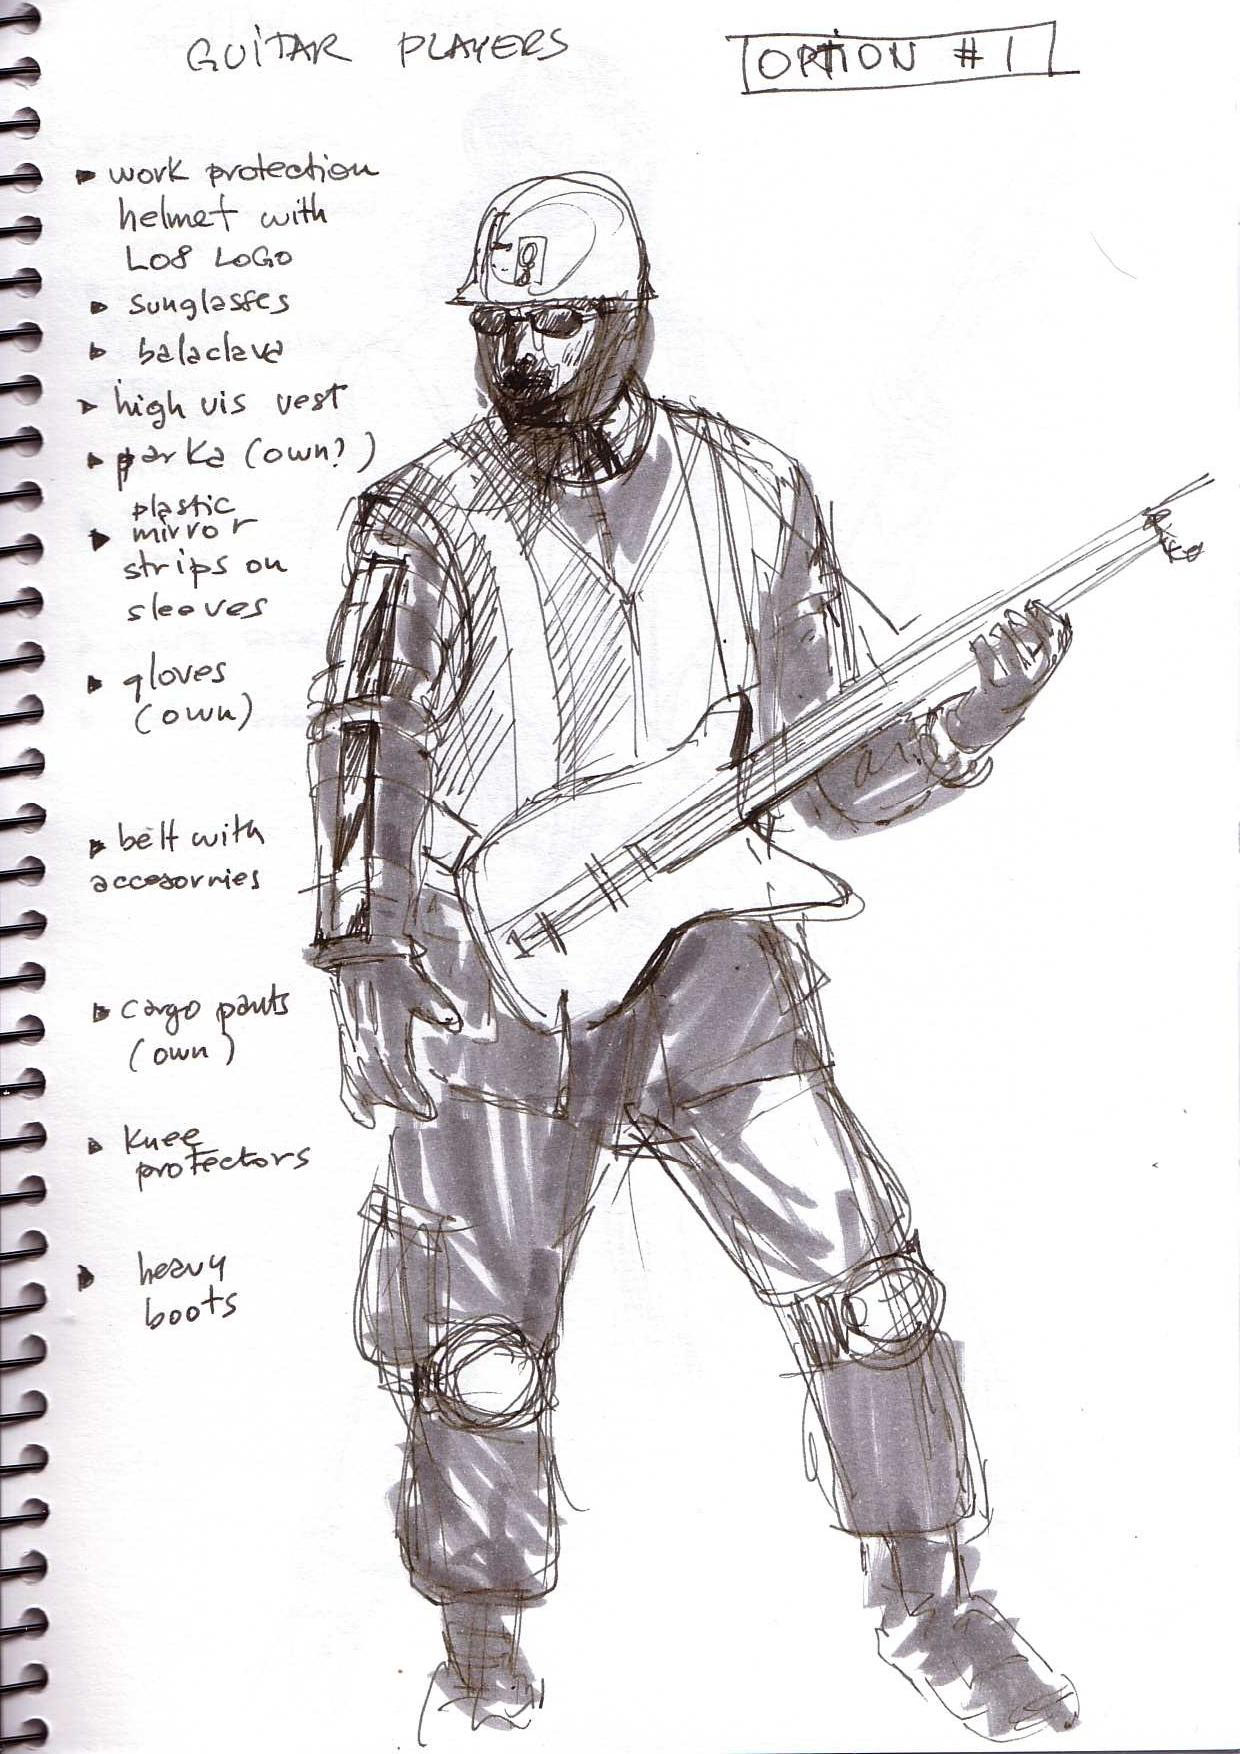 GUITAR PLAYERS
OPTION #1
work protection
helmet with
LO8 LOGO
sunglasses
balaclava
high vis vest
parka (own?)
plastic
mirror
strips on
sleeves
gloves
(own)
belt with
accesorries
cargo pants
(own)
knee
protectors
heavy
boots